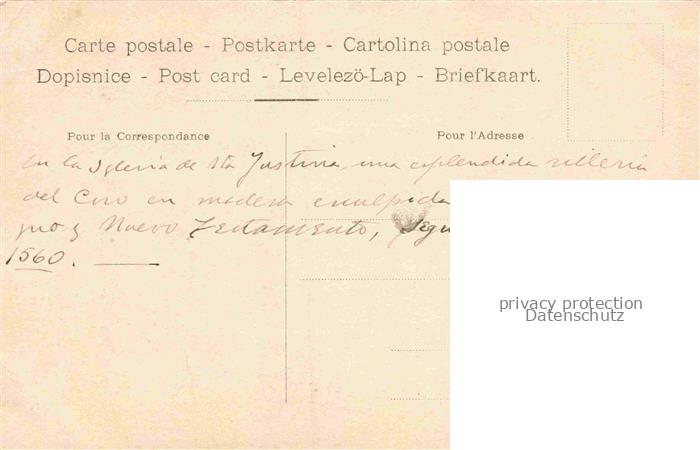 Carte postale - Postkarte - Cartolina postale
Dopisnice - Post card - Levelezö-Lap - Briefkaart.
Pour la Correspondance
Pour l'Adresse
En la Iglesia de Sta Justina, una esplendida silleria
del Coro en madera esculpida
guo y Nuevo Testamento,
1560.
privacy protection
Datenschutz